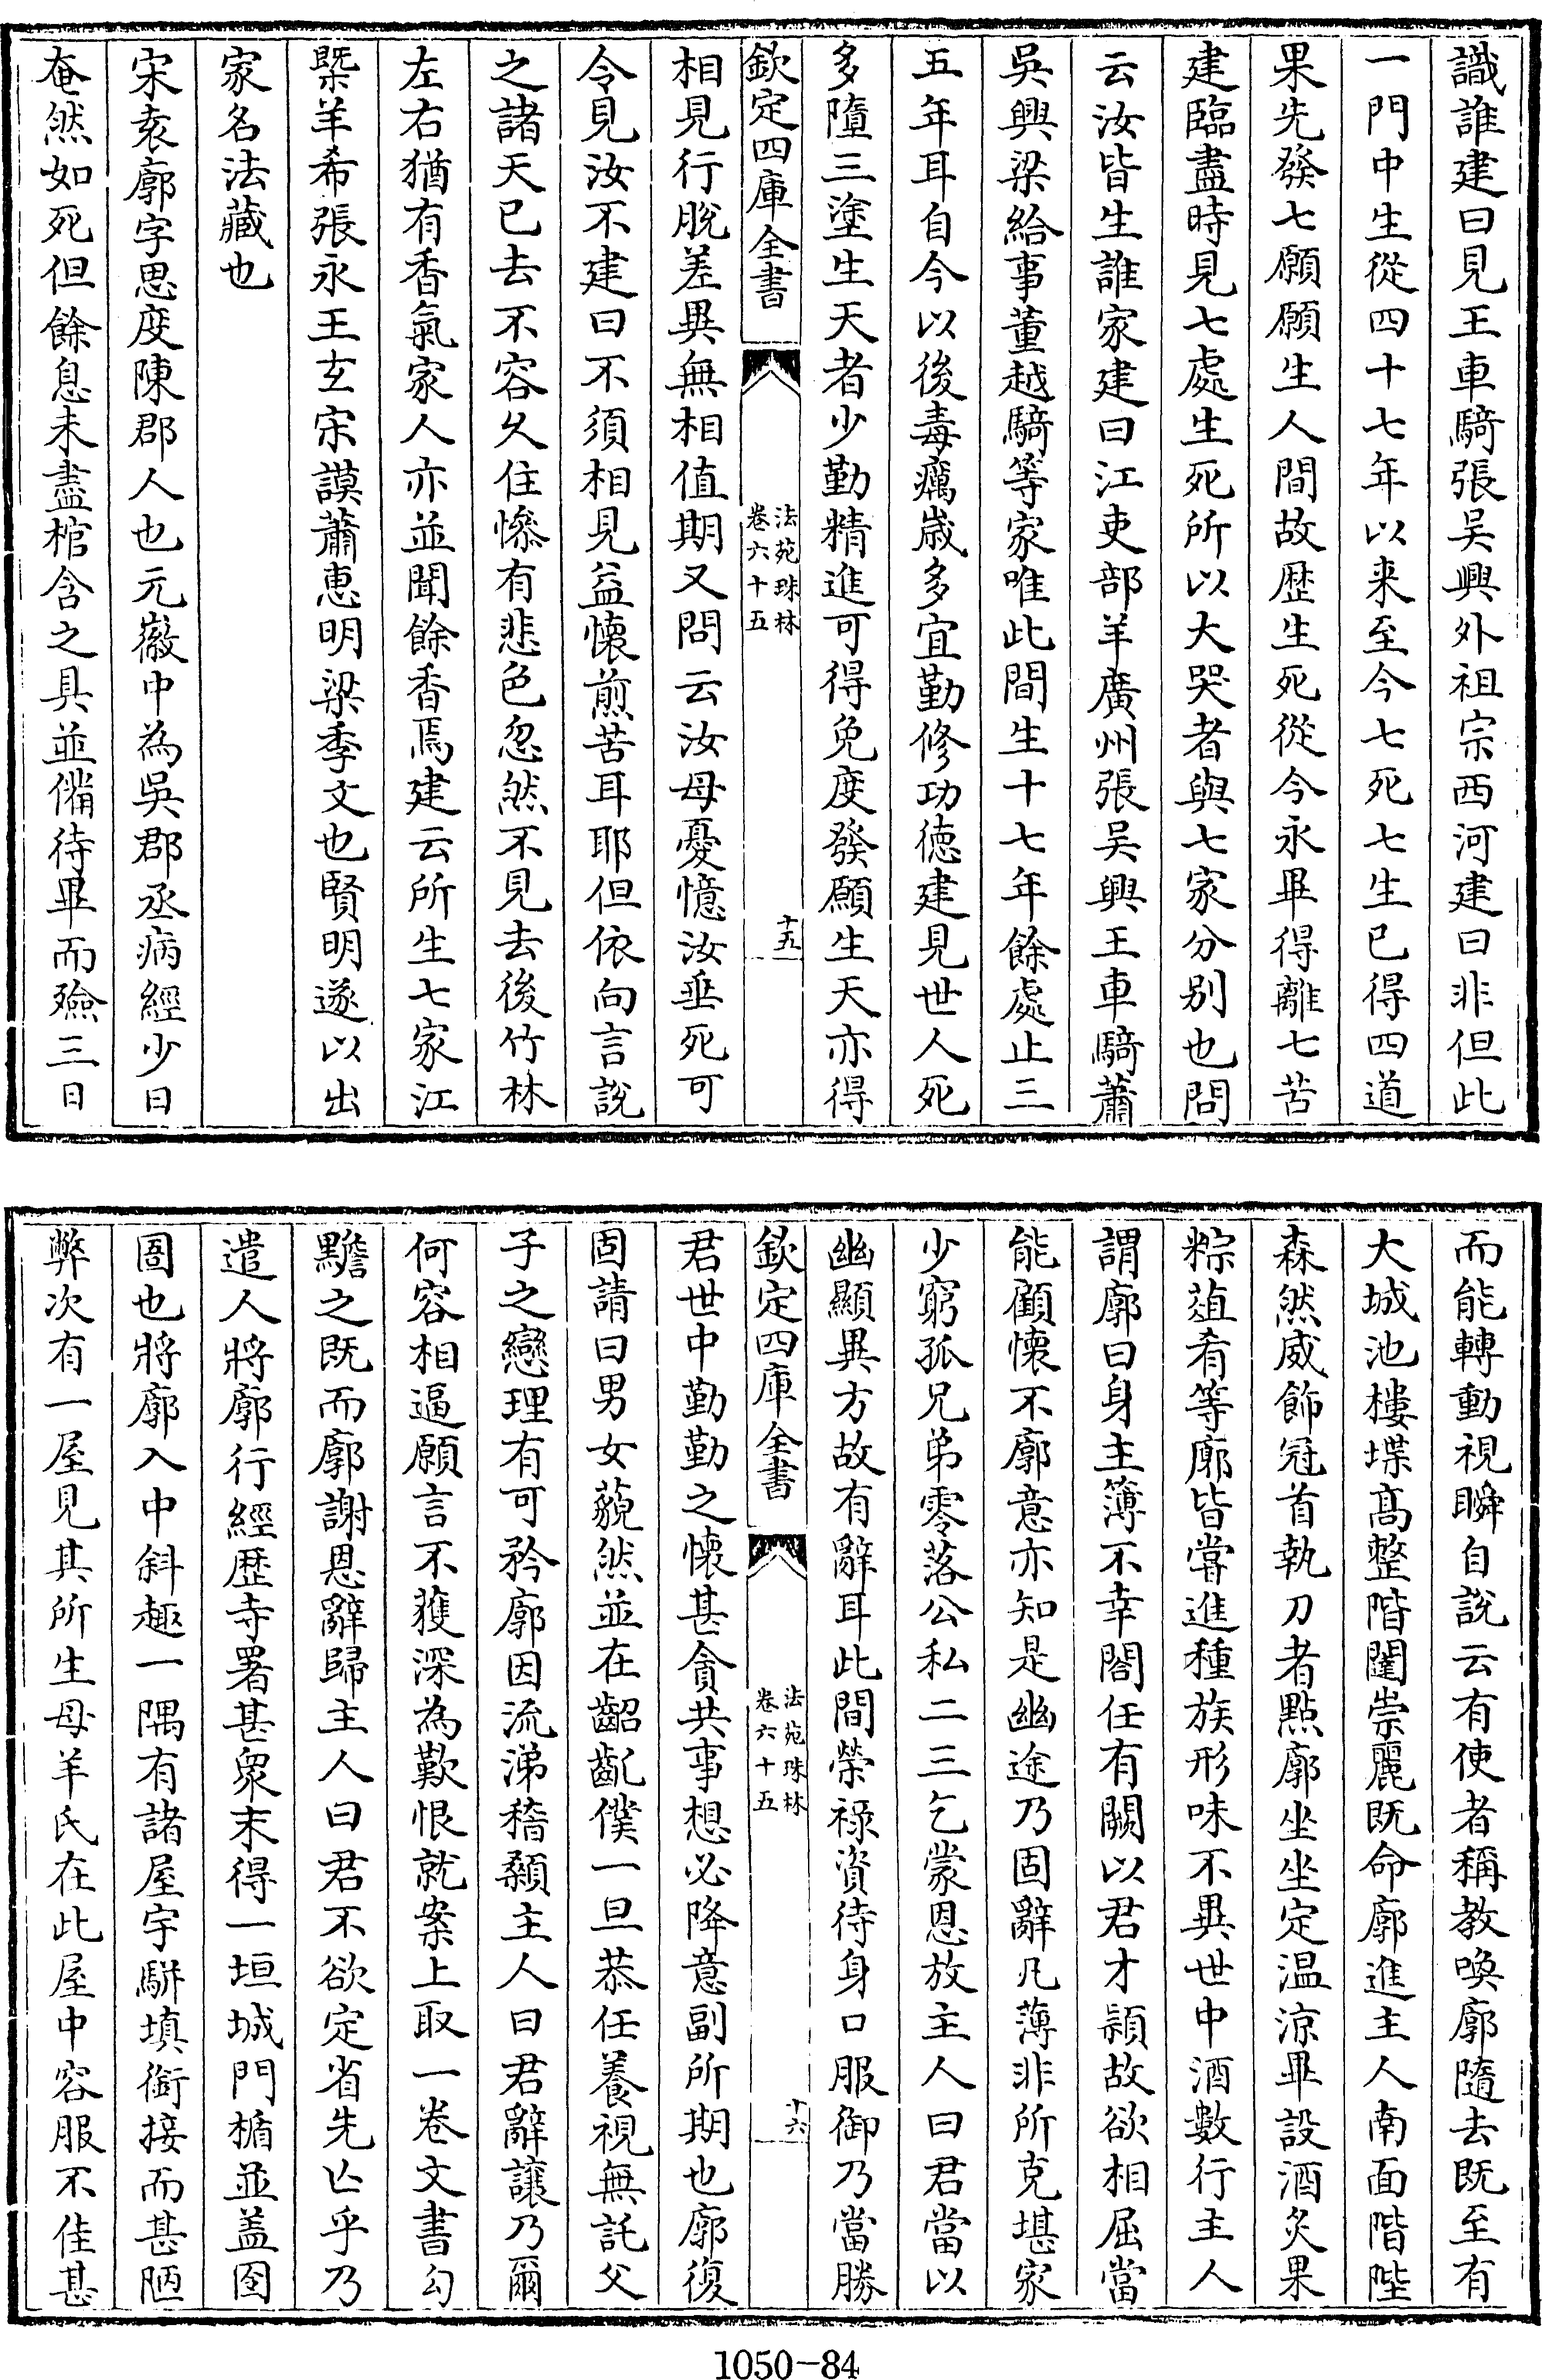 識誰建曰見王車騎張吳興外祖宗西河建曰非但此
一門中生從四十七年以来至今七死七生已得四道
果先發七願願生人間故歴生死從今永畢得離七苦
建臨盡時見七處生死所以大哭者與七家分别也問
云汝皆生誰家建曰江吏部羊廣州張吳興王車騎蕭
吳興梁給事董越騎等家唯此間生十七年餘處止三
五年耳自今以後毒癘歳多宜勤修功徳建見世人死
多墮三塗生天者少勤精進可得免度發願生天亦得
欽定四庫全書
法苑珠林
卷六十五
十五
相見行脱差異無相值期又問云汝母憂憶汝垂死可
令見汝不建曰不須相見益懷煎苦耳耶但依向言說
之諸天已去不容久住慘有悲色忽然不見去後竹林
左右猶有香氣家人亦並聞餘香焉建云所生七家江
槩羊希張永王玄宗謨蕭恵明梁季文也賢明遂以出
家名法藏也
宋袁廓字思度陳郡人也元徽中為吳郡丞病經少日
奄然如死但餘息未盡棺含之具並備待畢而殮三日
而能轉動視瞬自說云有使者稱教喚廓隨去既至有
大城池樓堞髙整階闥崇麗既命廓進主人南面階陛
森然威飾冠首執刀者點廓坐坐定温涼畢設酒炙果
粽葅肴等廓皆嘗進種族形味不異世中酒數行主人
謂廓曰身主簿不幸閤任有闕以君才頴故欲相屈當
能顧懷不廓意亦知是幽途乃固辭凡薄非所克堪家
少窮孤兄弟零落公私二三乞蒙恩放主人曰君當以
幽顯異方故有辭耳此間榮禄資待身口服御乃當勝
欽定四庫全書
法苑珠林
卷六十五
十六
君世中勤勤之懷甚貪共事想必降意副所期也廓復
固請曰男女藐然並在齠齓僕一旦恭任養視無託父
子之戀理有可矜廓因流涕稽顙主人曰君辭讓乃爾
何容相逼願言不獲深為歎恨就案上取一卷文書勾
黵之既而廓謝恩辭歸主人曰君不欲定省先亡乎乃
遣人將廓行經歴寺署甚衆末得一垣城門楯並盖囹
圄也將廓入中斜趣一隅有諸屋宇駢填銜接而甚陋
弊次有一屋見其所生母羊氏在此屋中容服不佳甚
1050-84